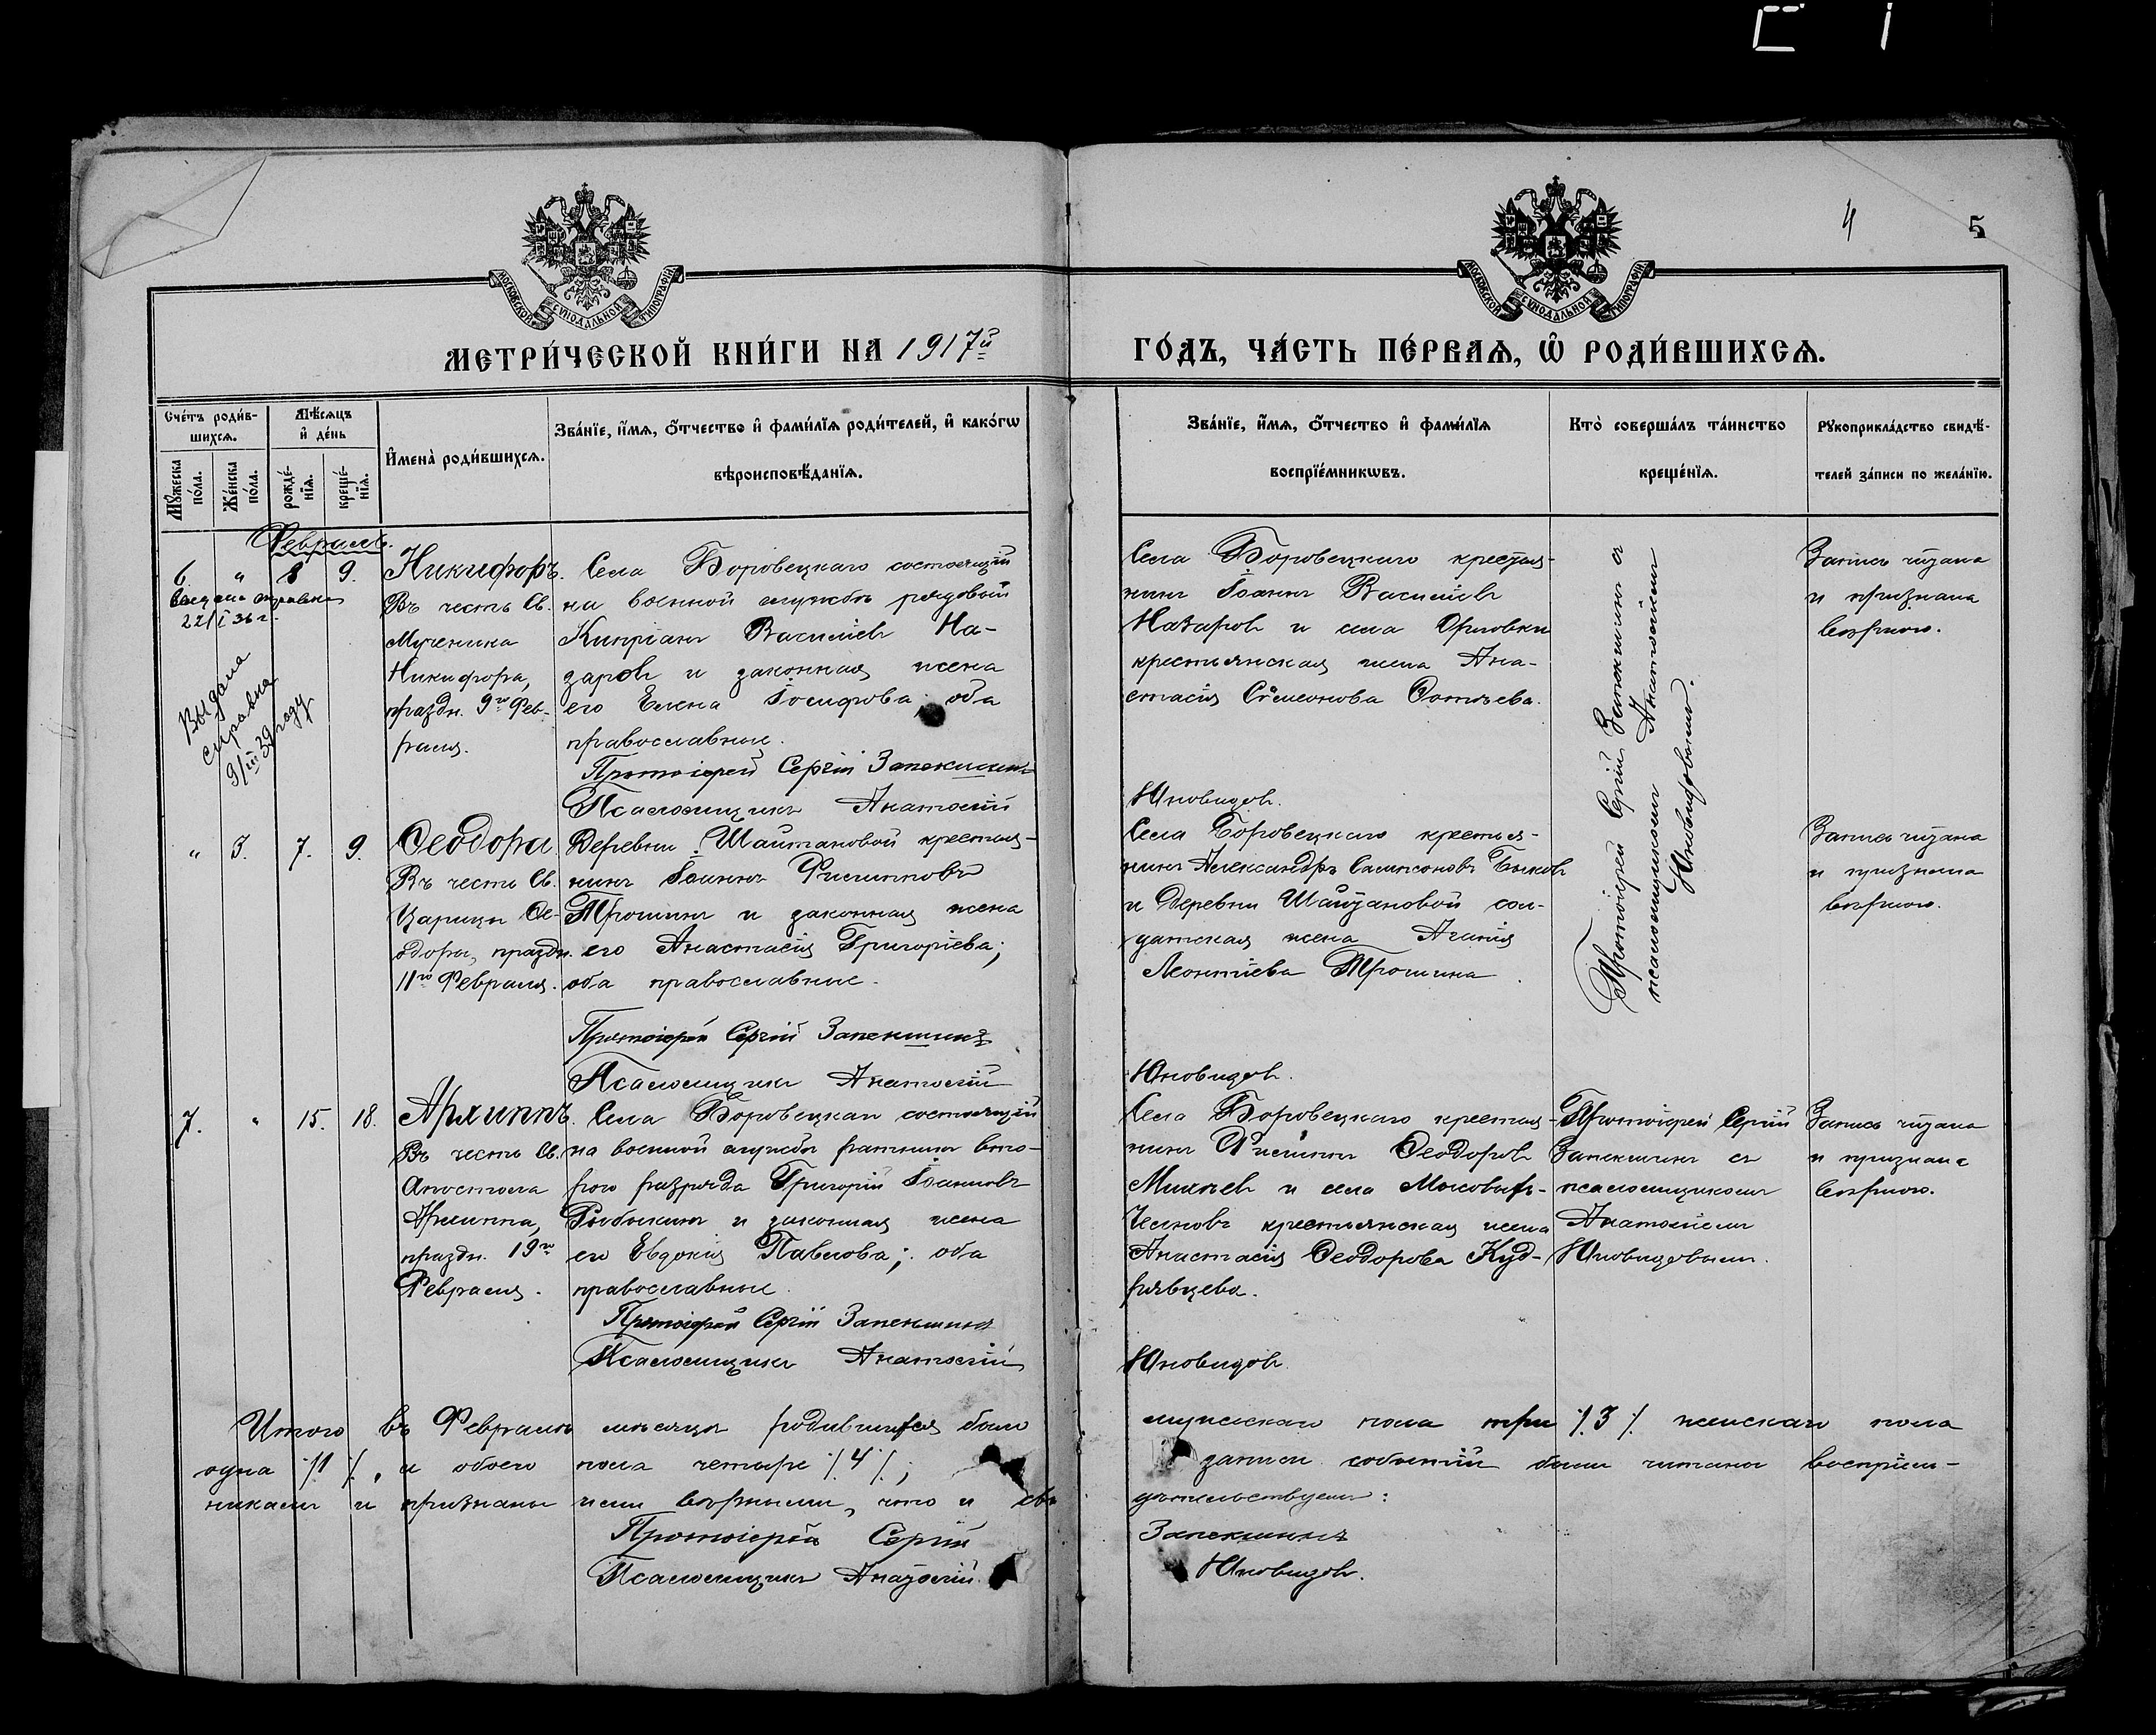 4
5
МОСКОВСКОЙ СѴНОДАЛЬНОЙ ТИПОГРАФІИ
МОСКОВСКОЙ СѴНОДАЛЬНОЙ ТИПОГРАФІИ
МЕТРИ́ЧЕСКОЙ КНИ́ГИ НА 1917й
ГО́ДЪ, ЧА́СТЬ ПЕ́РВАѦ, Ѽ РОДИ́ВШИХСѦ.
Сче́тъ роди́в-
шихсѧ.
Мꙋ́жеска по́ла.
Же́нска по́ла.
Мѣ́сѧцъ и҆ де́нь
рожде́-нїѧ.
креще́-нїѧ.
И҆мена̀ роди́вшихсѧ.
Зва́нїе, и҆́мѧ, ѻ҆́тчество и҆ фами́лїѧ роди́телей, и҆ како́гѡ
вѣроисповѣ́данїѧ.
Зва́нїе, и҆́мѧ, ѻ҆́тчество и҆ фами́лїѧ
воспрїе́мникѡвъ.
Кто̀ соверша́лъ та́инство
креще́нїѧ.
Рꙋкоприкла́дство свидѣ́-
телей за́писи по жела́нїю.
Февраль.
6. " 8 9.
Выдана справка
22/I 36 г.
Выдана
справка
9/III 39 году
Никифоръ.
Въ честь Св.
Мученика
Никифора,
праздн. 9го Фев-
раля.
Села Боровецкаго состоящій
на военной службѣ рядовой
Кипріанъ Василіевъ На-
заровъ и законная жена
его Елена Іосифова; оба
православные.
Протоіерей Сергій Запекшинъ
Псаломщикъ Анатолій
Села Боровецкаго крестья-
нинъ Іоаннъ Василіевъ
Назаровъ и села Орловки
крестьянская жена Ана-
стасія Сѵмеонова
Юновидовъ.
Протоіерей Сергій Запекшинъ съ
псаломщикомъ Анатоліемъ
Юновидовымъ.
Запись читана
и признана
вѣрною.
" 3. 7. 9.
Ѳеодора
Въ честь Св.
Царицы Ѳе-
одоры, праздн.
11го Февраля.
Деревни Шайтановой крестья-
нинъ Іоаннъ Филипповъ
Трошинъ и законная жена
его Анастасія Григоріева;
оба православные.
Протоіерей Сергій Запекшинъ
Псаломщикъ Анатолій
Села Боровецкаго крестья-
нинъ Александръ Сампсоновъ Быковъ
и деревни Шайтановой сол-
датская жена Агапія
Леонтіева Трошина.
Юновидовъ.
Запись читана
и признана
вѣрною.
7. " 15. 18.
Архиппъ.
Въ честь Св.
Апостола
Архиппа,
праздн. 19го
Февраля.
Села Боровецкаго состоящій
на военной службѣ ратникъ вто-
рого разряда Григорій Іоанновъ
Рыбакинъ и законная жена
его Евдокія Павлова; оба
православные.
Протоіерей Сергій Запекшинъ
Псаломщикъ Анатолій
Села Боровецкаго крестья-
нинъ Филиппъ Ѳеодоровъ
Михѣевъ и села
крестьянская жена
Анастасія Ѳеодорова Куд-
рявцева.
Юновидовъ.
Протоіерей Сергій
Запекшинъ съ
псаломщикомъ
Анатоліемъ
Юновидовымъ.
Запись читана
и признана
вѣрною.
Итого въ Февралѣ мѣсяцѣ родившихся было мужескаго пола три ·/. 3 ·/. женскаго пола
одна ·/. 1 ·/., а обоего пола четыре ·/. 4 ·/.; записи событій были читаны воспріем-
никамъ и признаны ими вѣрными, что и свидѣтельствуемъ:
Протоіерей Сергій Запекшинъ
Псаломщикъ Анатолій Юновидовъ.